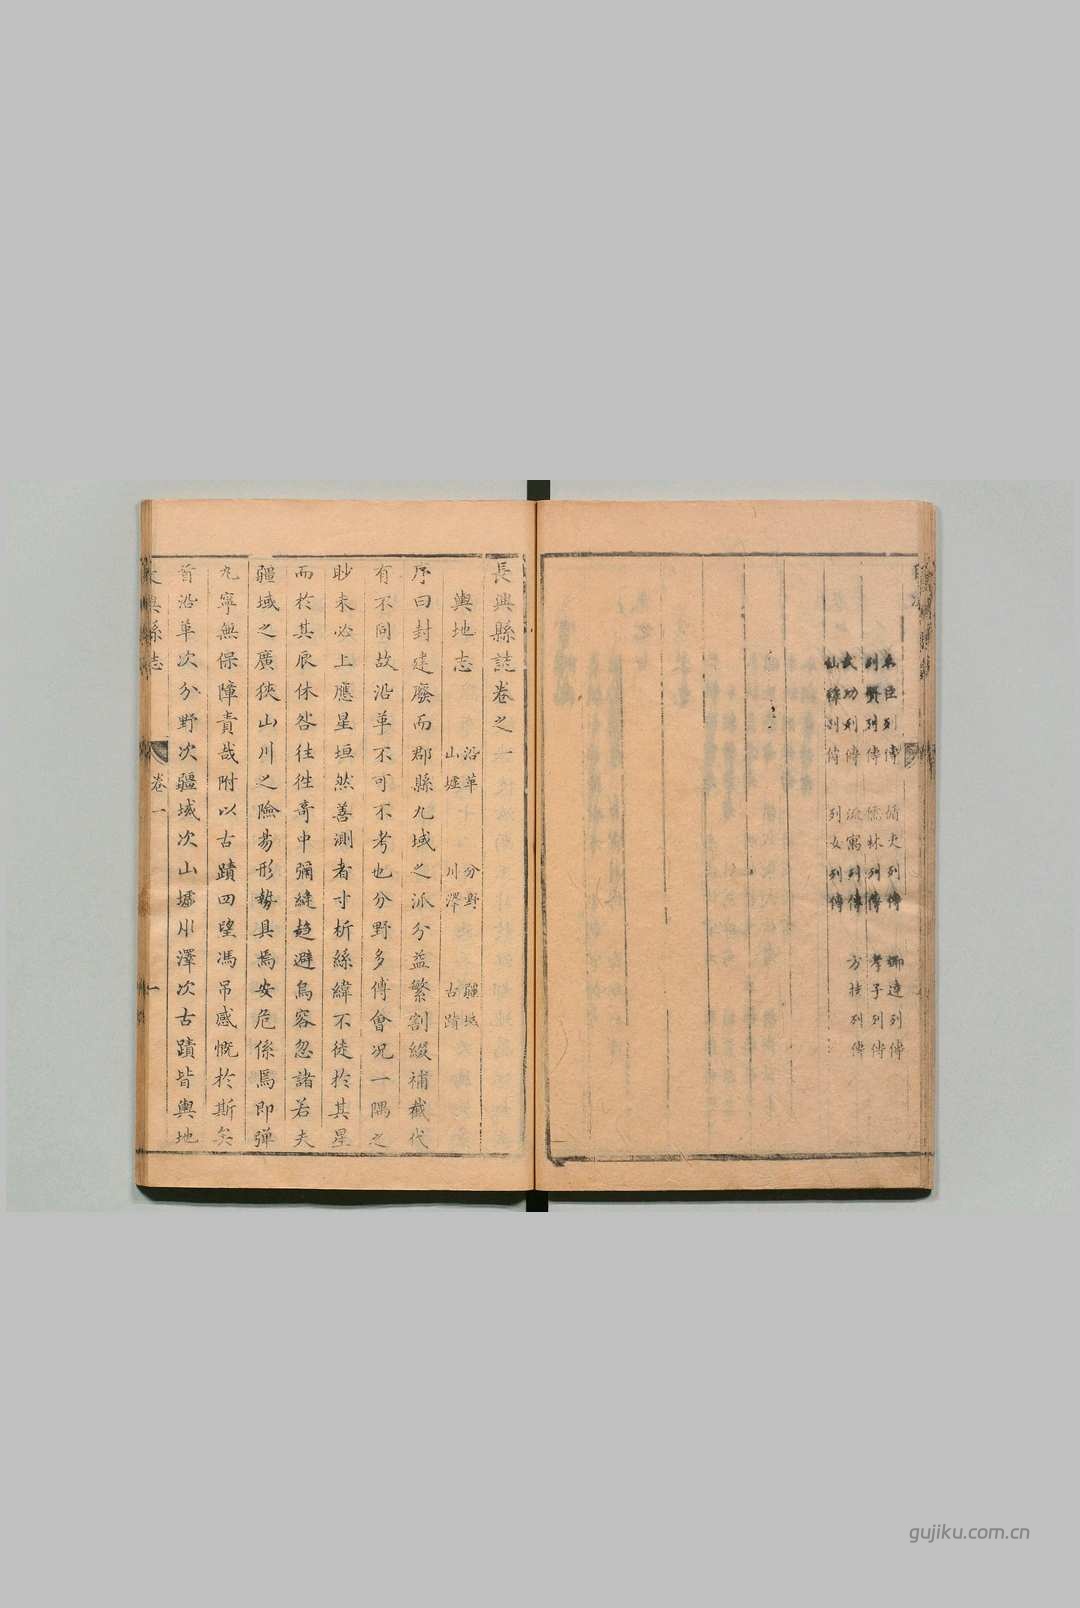 名臣列傳 循吏列傳 鄉達列傳
列賢列傳 儒林列傳 孝子列傳
武功列傳 流寓列傳 方技列傳
仙釋列傳 列女列傳
長興縣誌卷之一
輿地志 沿革 分野 疆域
山墟 川澤 古蹟
序曰封建廢而郡縣九域之派分益繁割綴補截代
有不同故沿革不可不考也分野多傅會况一隅之
眇未必上應星垣然善測者寸析絲緯不徒於其星
而於其辰休咎往徃竒中彌縫趋避烏容忽諸若夫
疆域之廣狹山川之險易形勢具焉安危係焉即弹
丸寧無保障責哉附以古蹟四望馮吊感慨於斯矣
首沿革次分野次疆域次山墟川澤次古蹟皆輿地
興縣志 卷一 一
gujiku.com.cn